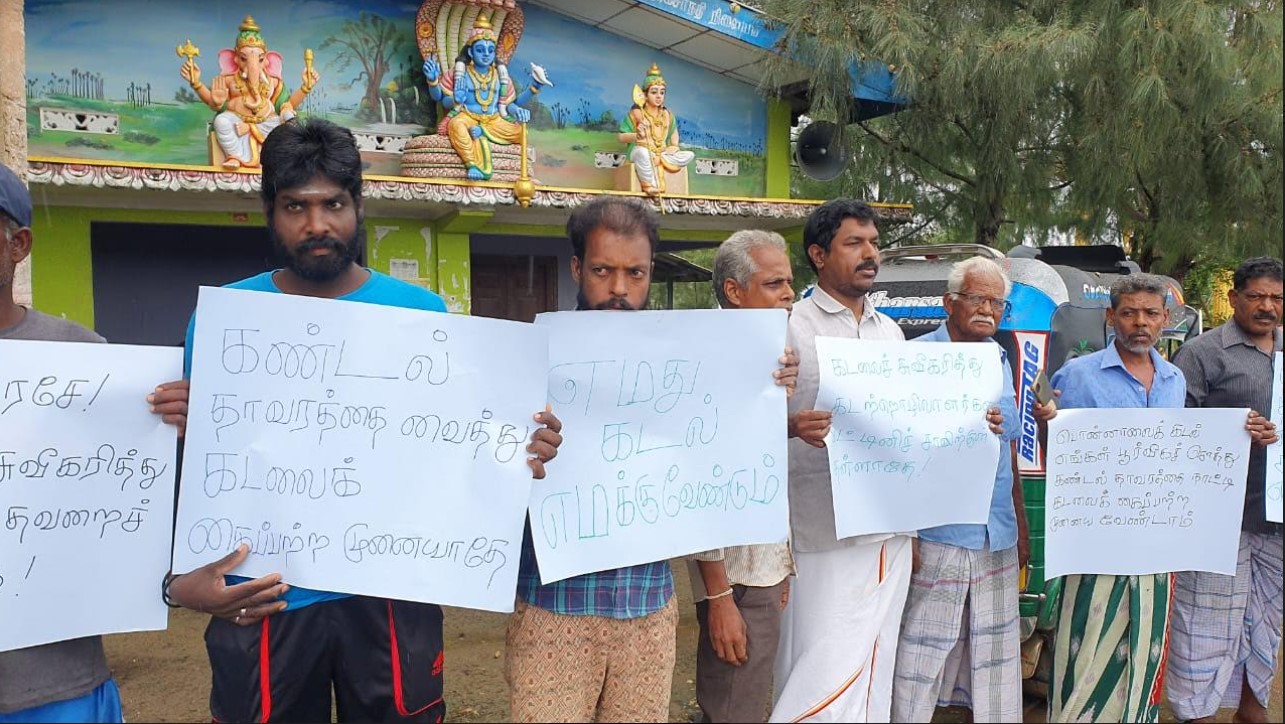 நிலையம்
ரசே!
சுவிகரித்து
தவறைச்
கண்டல்
தாவரத்தை வைத்து
கடலைக்
கைப்பற்ற முனையாதே
எமது
கடல்
எமக்குவேண்டும்
கடலைச் சுவிகரித்து
பட்டினிச்
பொன்னாவைக் கடல்
எங்கள் பூர்விகச் சொத்து
கண்டல் தாவரத்தை நாட்டி
கடலைக் கைப்பற்ற
முனைய வேண்டாம்
Express
RACING TAG